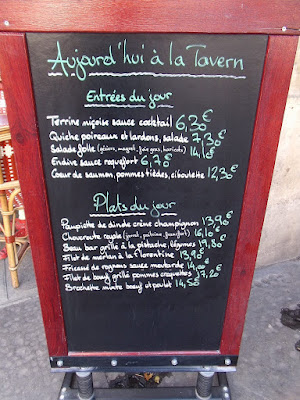 Aujourd'hui à la Tavern
Entrées du jour
Terrine niçoise sauce cocktail 6,30€
Quiche poireaux et lardons, salade 7,30€
Salade folle (gésiers, magret, foie gras, haricots) 14,10€
Endive sauce roquefort 6,75
Cœur de saumon, pommes tièdes, ciboulette 12,30€
Plats du jour
Paupiette de dinde crème champignon 13,90€
Choucroute royale (jarret, poitrine, francfort) 16,10€
Beau bar grillé à la pistache, légumes 19,80€
Filet de merlan à la florentine 13,90€
Fricassé de rognons sauce moutarde 14,00€
Filet de bœuf grillé pommes croquettes 17,20€
Brochette mixte bœuf et poulet 14,50€